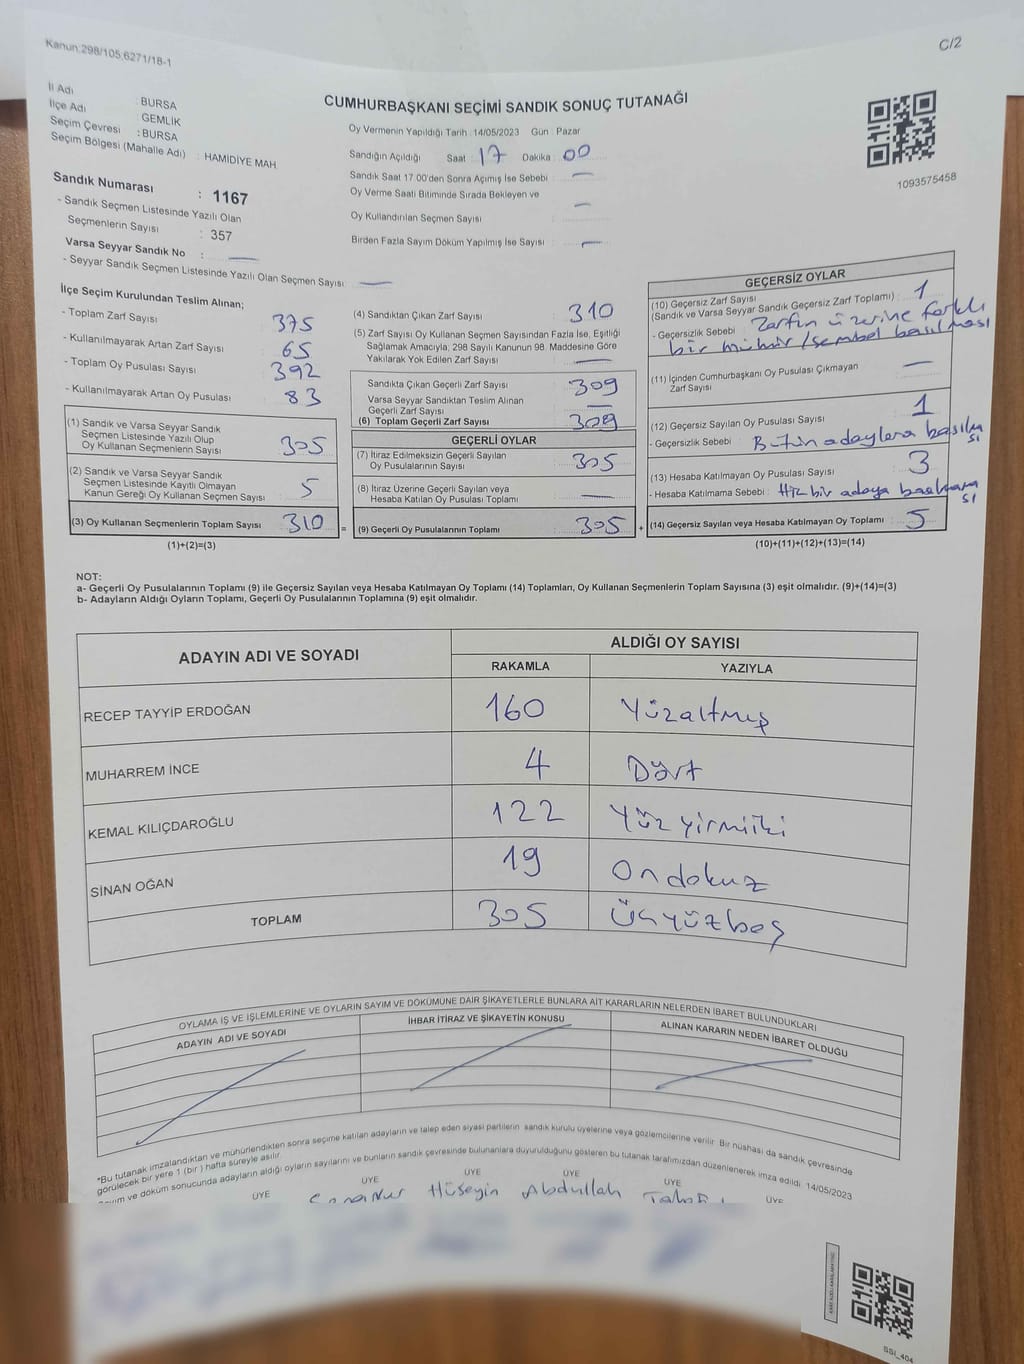 Kanun:298/105,6271/18-1
C/2
İl Adı : BURSA
İlçe Adı : GEMLİK
Seçim Çevresi : BURSA
Seçim Bölgesi (Mahalle Adı) : HAMIDIYE MAH.
CUMHURBAŞKANI SEÇİMİ SANDIK SONUÇ TUTANAĞI
Oy Vermenin Yapıldığı Tarih :14/05/2023 Gün : Pazar
Sandığın Açıldığı Saat : 17 Dakika : 00
Sandık Saat 17.00'den Sonra Açımış İse Sebebi : —
Oy Verme Saati Bitiminde Sırada Bekleyen ve
Oy Kullandırılan Seçmen Sayısı : —
Birden Fazla Sayım Döküm Yapılmış İse Sayısı : —
1093575458
Sandık Numarası : 1167
- Sandık Seçmen Listesinde Yazılı Olan
Seçmenlerin Sayısı : 357
Varsa Seyyar Sandık No : —
- Seyyar Sandık Seçmen Listesinde Yazılı Olan Seçmen Sayısı: —
İlçe Seçim Kurulundan Teslim Alınan;
- Toplam Zarf Sayısı : 375
- Kullanılmayarak Artan Zarf Sayısı : 65
- Toplam Oy Pusulası Sayısı : 392
- Kullanılmayarak Artan Oy Pusulası : 83
(1) Sandık ve Varsa Seyyar Sandık
Seçmen Listesinde Yazılı Olup
Oy Kullanan Seçmenlerin Sayısı : 305
(2) Sandık ve Varsa Seyyar Sandık
Seçmen Listesinde Kayıtlı Olmayan
Kanun Gereği Oy Kullanan Seçmen Sayısı : 5
(3) Oy Kullanan Seçmenlerin Toplam Sayısı : 310
(1)+(2)=(3)
(4) Sandıktan Çıkan Zarf Sayısı : 310
(5) Zarf Sayısı Oy Kullanan Seçmen Sayısından Fazla İse, Eşitliği
Sağlamak Amacıyla; 298 Sayılı Kanunun 98. Maddesine Göre
Yakılarak Yok Edilen Zarf Sayısı : —
Sandıkta Çıkan Geçerli Zarf Sayısı : 309
Varsa Seyyar Sandıktan Teslim Alınan
Geçerli Zarf Sayısı : —
(6) Toplam Geçerli Zarf Sayısı : 309
GEÇERLİ OYLAR
(7) İtiraz Edilmeksizin Geçerli Sayılan
Oy Pusulalarının Sayısı : 305
(8) İtiraz Üzerine Geçerli Sayılan veya
Hesaba Katılan Oy Pusulası Toplamı : —
= (9) Geçerli Oy Pusulalarının Toplamı : 305 +
GEÇERSİZ OYLAR
(10) Geçersiz Zarf Sayısı
(Sandık ve Varsa Seyyar Sandık Geçersiz Zarf Toplamı) : 1
- Geçersizlik Sebebi : Zarfın üzerine farklı
bir mühür/sembol basılması
(11) İçinden Cumhurbaşkanı Oy Pusulası Çıkmayan
Zarf Sayısı : —
(12) Geçersiz Sayılan Oy Pusulası Sayısı : 1
- Geçersizlik Sebebi : Bütün adaylara basılma
sı
(13) Hesaba Katılmayan Oy Pusulası Sayısı : 3
- Hesaba Katılmama Sebebi : Hiç bir adaya basılmama
sı
(14) Geçersiz Sayılan veya Hesaba Katılmayan Oy Toplamı : 5
(10)+(11)+(12)+(13)=(14)
NOT:
a- Geçerli Oy Pusulalarının Toplamı (9) ile Geçersiz Sayılan veya Hesaba Katılmayan Oy Toplamı (14) Toplamları, Oy Kullanan Seçmenlerin Toplam Sayısına (3) eşit olmalıdır. (9)+(14)=(3)
b- Adayların Aldığı Oyların Toplamı, Geçerli Oy Pusulalarının Toplamına (9) eşit olmalıdır.
ADAYIN ADI VE SOYADI ALDIĞI OY SAYISI
RAKAMLA YAZIYLA
RECEP TAYYİP ERDOĞAN 160 Yüzaltmış
MUHARREM İNCE 4 Dört
KEMAL KILIÇDAROĞLU 122 Yüz yirmiiki
SİNAN OĞAN 19 Ondokuz
TOPLAM 305 Üçyüzbeş
OYLAMA İŞ VE İŞLEMLERİNE VE OYLARIN SAYIM VE DÖKÜMÜNE DAİR ŞİKAYETLERLE BUNLARA AİT KARARLARIN NELERDEN İBARET BULUNDUKLARI
ADAYIN ADI VE SOYADI İHBAR İTİRAZ VE ŞİKAYETİN KONUSU ALINAN KARARIN NEDEN İBARET OLDUĞU
*Bu tutanak imzalandıktan ve mühürlendikten sonra seçime katılan adayların ve talep eden siyasi partilerin sandık kurulu üyelerine veya gözlemcilerine verilir. Bir nüshası da sandık çevresinde
görülecek bir yere 1 (bir) hafta süreyle asılır.
ve döküm sonucunda adayların aldığı oyların sayılarını ve bunların sandık çevresinde bulunanlara duyurulduğunu gösteren bu tutanak tarafımızdan düzenlenerek imza edildi. 14/05/2023
ÜYE ÜYE ÜYE ÜYE ÜYE ÜYE
Hüseyin Abdullah
SSI_404